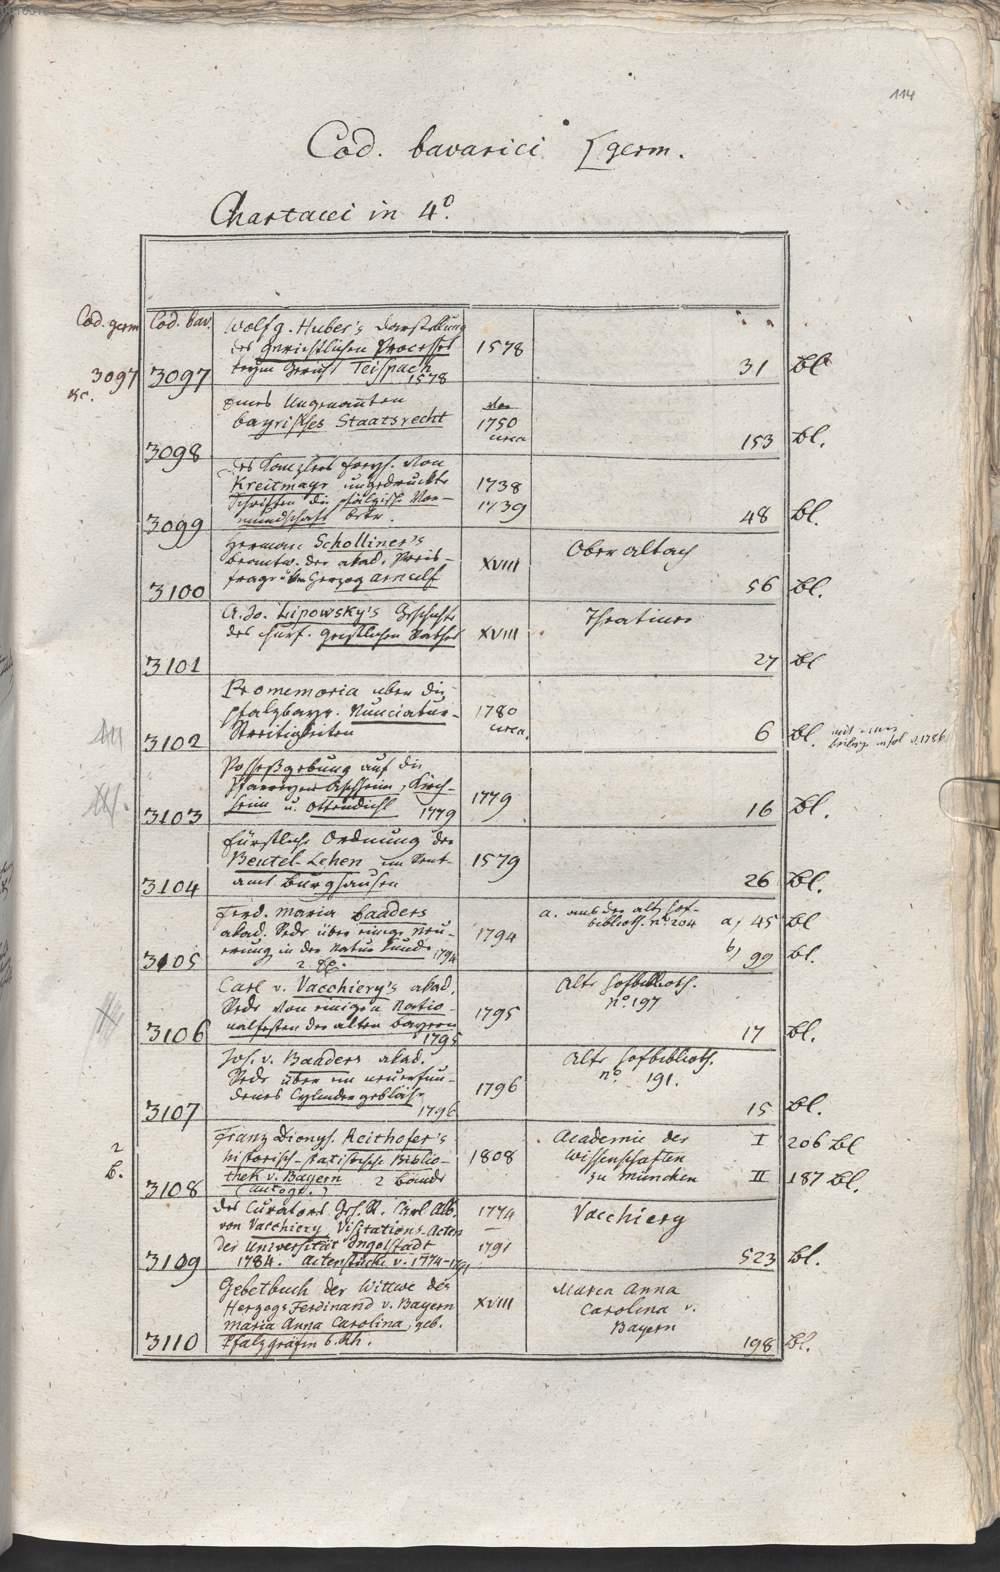 114
Cod. bavarici [germ.
Chartacei in 4º.
Cod. germ
Cod. bav.
Wolfg. Huber's Darstellung
des gerichtlichen Processes
beym Gericht Teispach
1578
1578
3097
3097
31
Bl
Eines Ungenañten
bayrisches Staatsrecht
1750
circa
3098
153
Bl.
Des Kanzlers Freyh. von
Kreitmayr ungedruckte
Schriften die pfälzisch. Vor-
mundschaft betr.
1738
1739
3099
48
Bl.
Herman Scholliner's
beantw. der akad. Preis-
frage über Herzog Arnulf
XVIII
Ober altach
3100
56
Bl.
A. Jo. Lipowsky's Geschichte
des churf. geistlichen Rathes
XVIII
Theatiner
3101
27
Bl
Promemoria uber die
pfalzbayr. Nunciatur-
Streitigkeiten
1780
circa.
3102
6
Bl.
Possessgebung auf die
Pfarreyen Aschheim, Kirch-
heim u. Ottendichl 1779
1779
3103
16
Bl.
Fürstliche Ordnung der
Beutel-Lehen im Rent-
amt Burghausen
1579
3104
26
Bl.
Ferd. Maria Baaders
akad. Rede über einige Neu-
erung in der Naturkunde
1794
2 Ex.
1794
a. aus der alt. Hof-
biblioth. nº 204
a) 45 Bl
b) 99 Bl.
3105
Carl v. Vacchiery's akad.
Rede von einigen Natio-
nalfesten der alten Bayern
1795
1795
Alte Hofbiblioth.
nº 197
3106
17
Bl.
Jos. v. Baaders akad.
Rede über ein neuerfun-
denes Cylindergebläse
1796
1796
Alte Hofbiblioth.
nº 191.
3107
15
Bl.
2
B.
Franz Dionys. Reithofer's
historisch-statistische Biblio-
thek v. Bayern 2 Bände
(autogr.)
1808
Academie der
Wissenschaften
zu München
I 206 Bl
II 187 Bl.
3108
des Curators Geh. R. Carl Alb.
von Vacchiery Visitations-Acten
der Universität Ingolstadt
1784. Actenstücke v. 1774-1791
1774
—
1791
Vacchiery
3109
523
Bl.
Gebetbuch der Wittwe des
Herzogs Ferdinand v. Bayern
Maria Anna Carolina, geb.
Pfalzgräfin b. Rh.
XVIII
Maria Anna
Carolina v.
Bayern
3110
198
Bl.